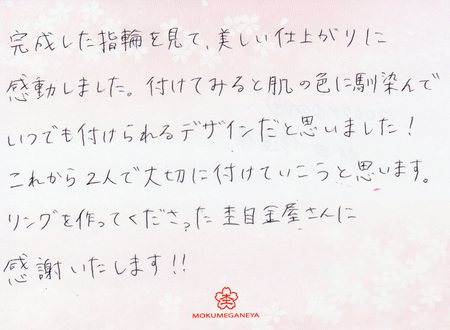 完成した指輪を見て、美しい仕上がりに
感動しました。付けてみると肌の色に馴染んで
いつでも付けられるデザインだと思いました！
これから2人で大切に付けていこうと思います。
リングを作ってくださった杢目金屋さんに
感謝いたします！！
杢
MOKUMEGANEYA